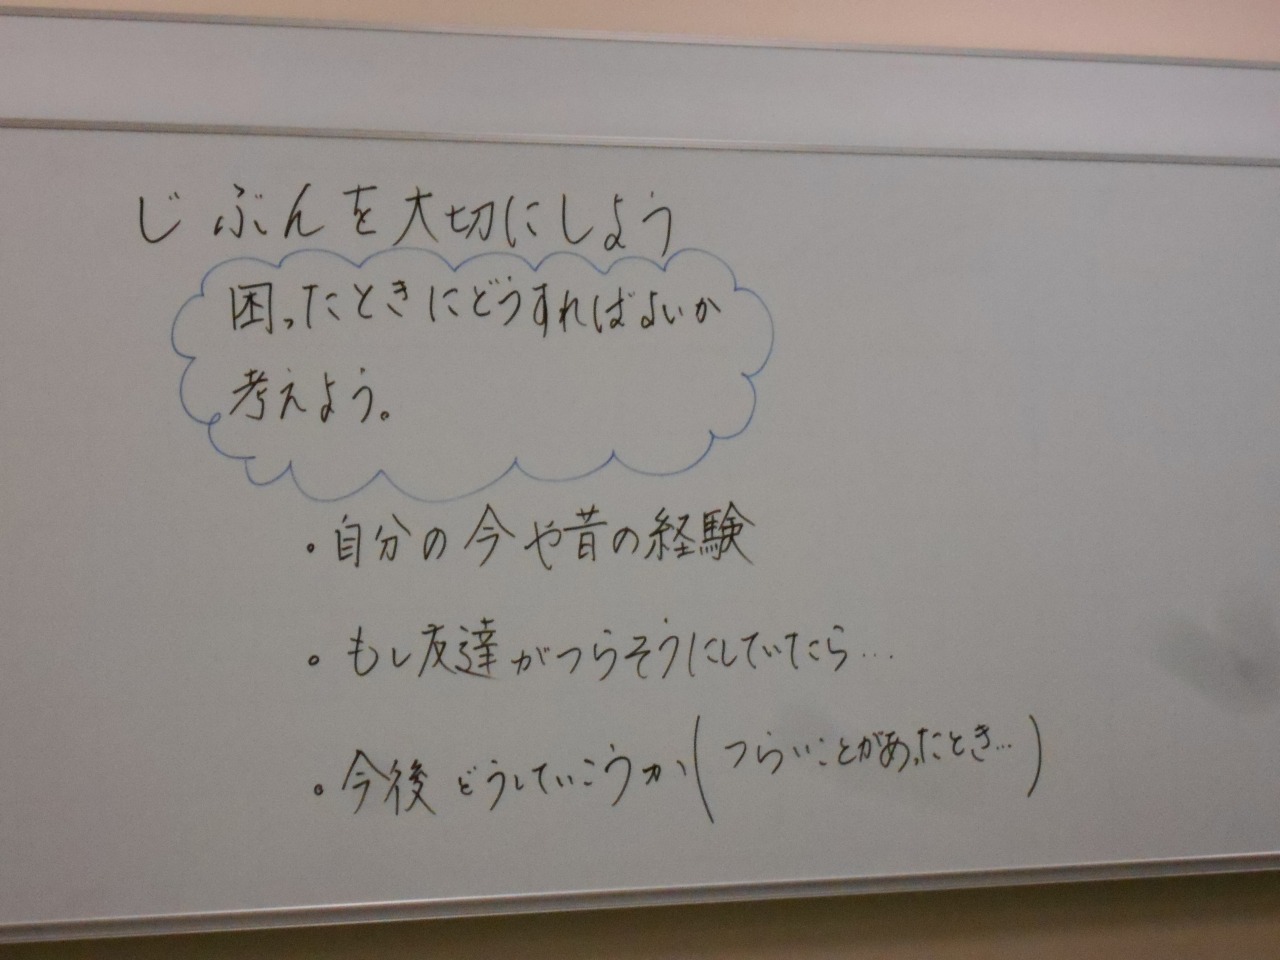 じぶんを大切にしよう
困ったときにどうすればよいか
考えよう。
・自分の今や昔の経験
・もし友達がつらそうにしていたら…
・今後どうしていこうか(つらいことがあったとき…)